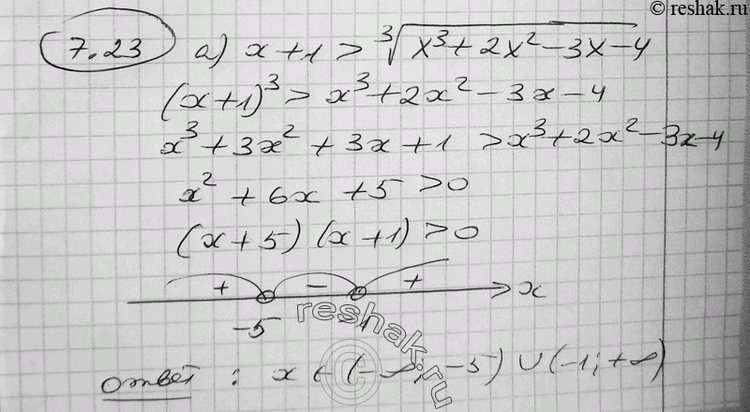 © reshak.ru
7.23 а) x+1 > ∛(x³+2x²-3x-4)
(x+1)³ > x³+2x²-3x-4
x³+3x²+3x+1 > x³+2x²-3x-4
x²+6x+5>0
(x+5)(x+1)>0
+ - + x
-5 -1
reshak.ru
©
Ответ: x ∈ (-∞; -5) ∪ (-1; +∞)